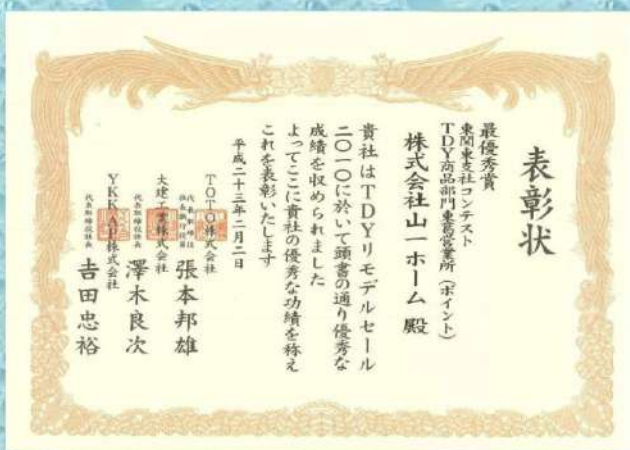 表彰状
最優秀賞
東関東支社コンテスト
TDY商品部門東葛営業所（ポイント）
株式会社山一ホーム 殿
貴社はTDYリモデルセール
二〇一〇に於いて頭書の通り優秀な
成績を収められました
よってここに貴社の優秀な功績を称え
これを表彰いたします
平成二十三年二月二日
TOTO株式会社
代表取締役
社長執行役員
張本邦雄
大建工業株式会社
代表取締役社長
澤木良次
YKK AP株式会社
代表取締役社長
吉田忠裕